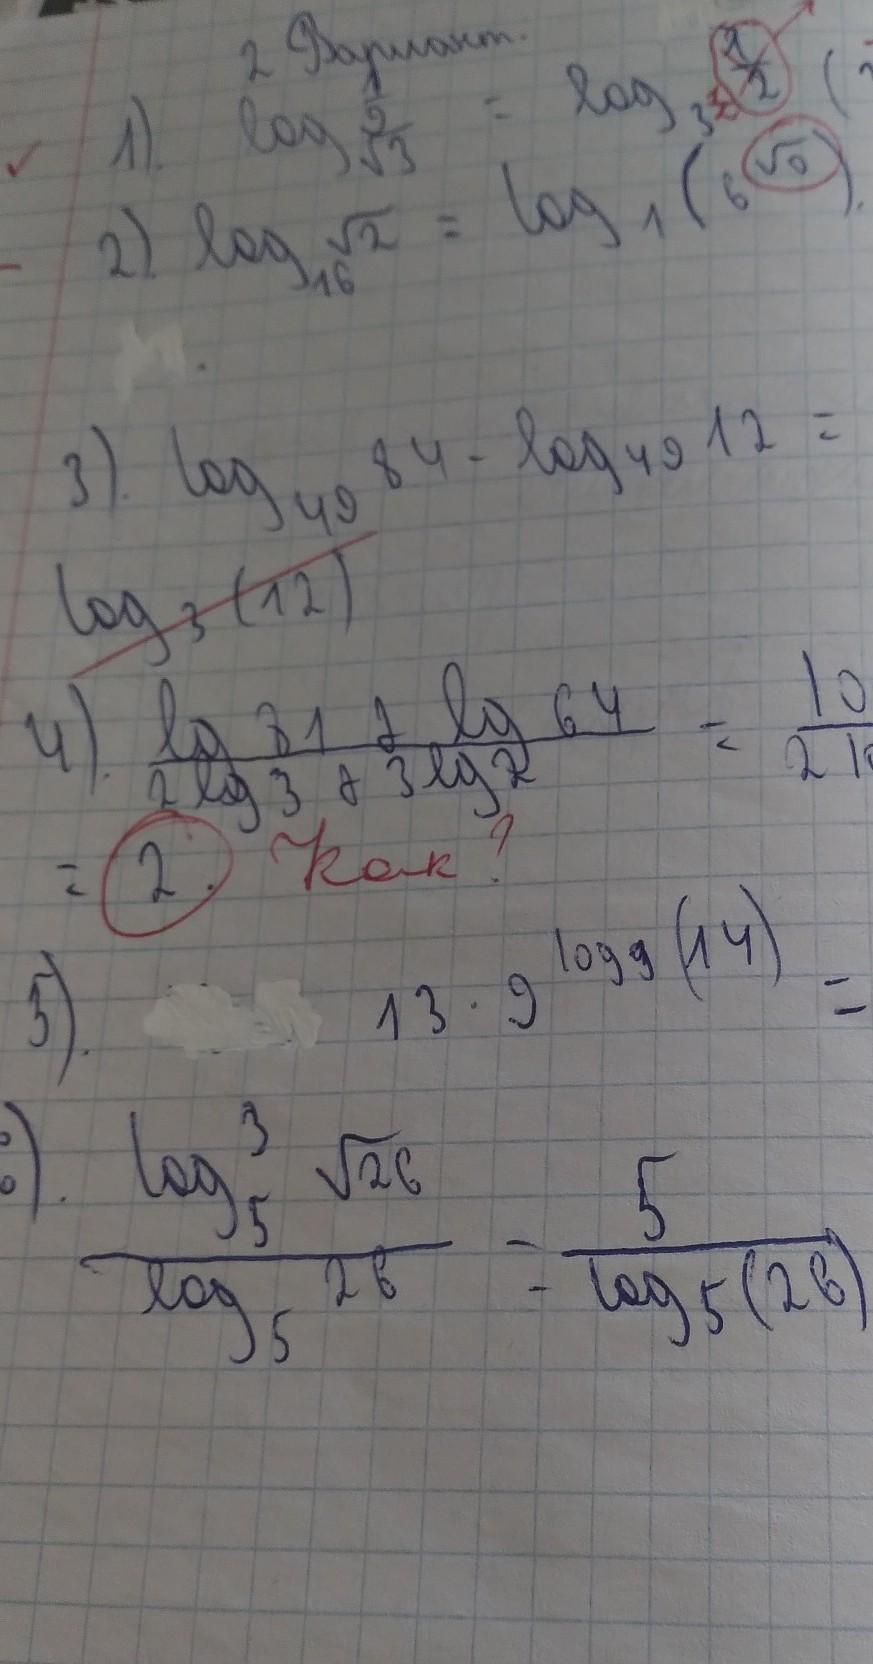 2 Вариант.
1). log √3 = log 3 1/2 (
2). log₁₆ √2 = log₁ (6^√0).
3). log₄₉ 84 - log₄₉ 12 =
log₃ (12)
4). (lg 81 + lg 64)/(2 lg 3 + 3 lg 2) = 10/2
= 2. Как?
5). 13 · 9^log₉(14) =
6). (log₅ ³√26)/(log₅ 26) = 5/(log₅(26))